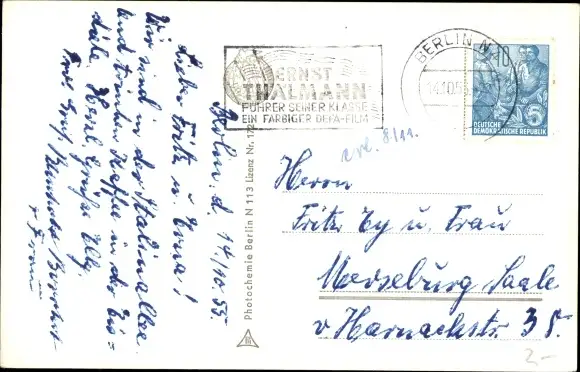 Berlin d. 14/10.55.
Lieber Fritz u. Erna!
Wir sind in der Stalinallee
und trinken Kaffee in der Eis=
diele. Herzl. Grüße Elly
Frau
ERNST
THÄLMANN
FÜHRER SEINER KLASSE
EIN FARBIGER DEFA-FILM
BERLIN N
14.10.55
10
5
DEUTSCHE
DEMOKRATISCHE REPUBLIK
Photochemie Berlin N 113 Lizenz Nr. 172
8/11.
Herrn
Fritz Ey u. Frau
Merseburg Saale
v Harnackstr. 38.
2-